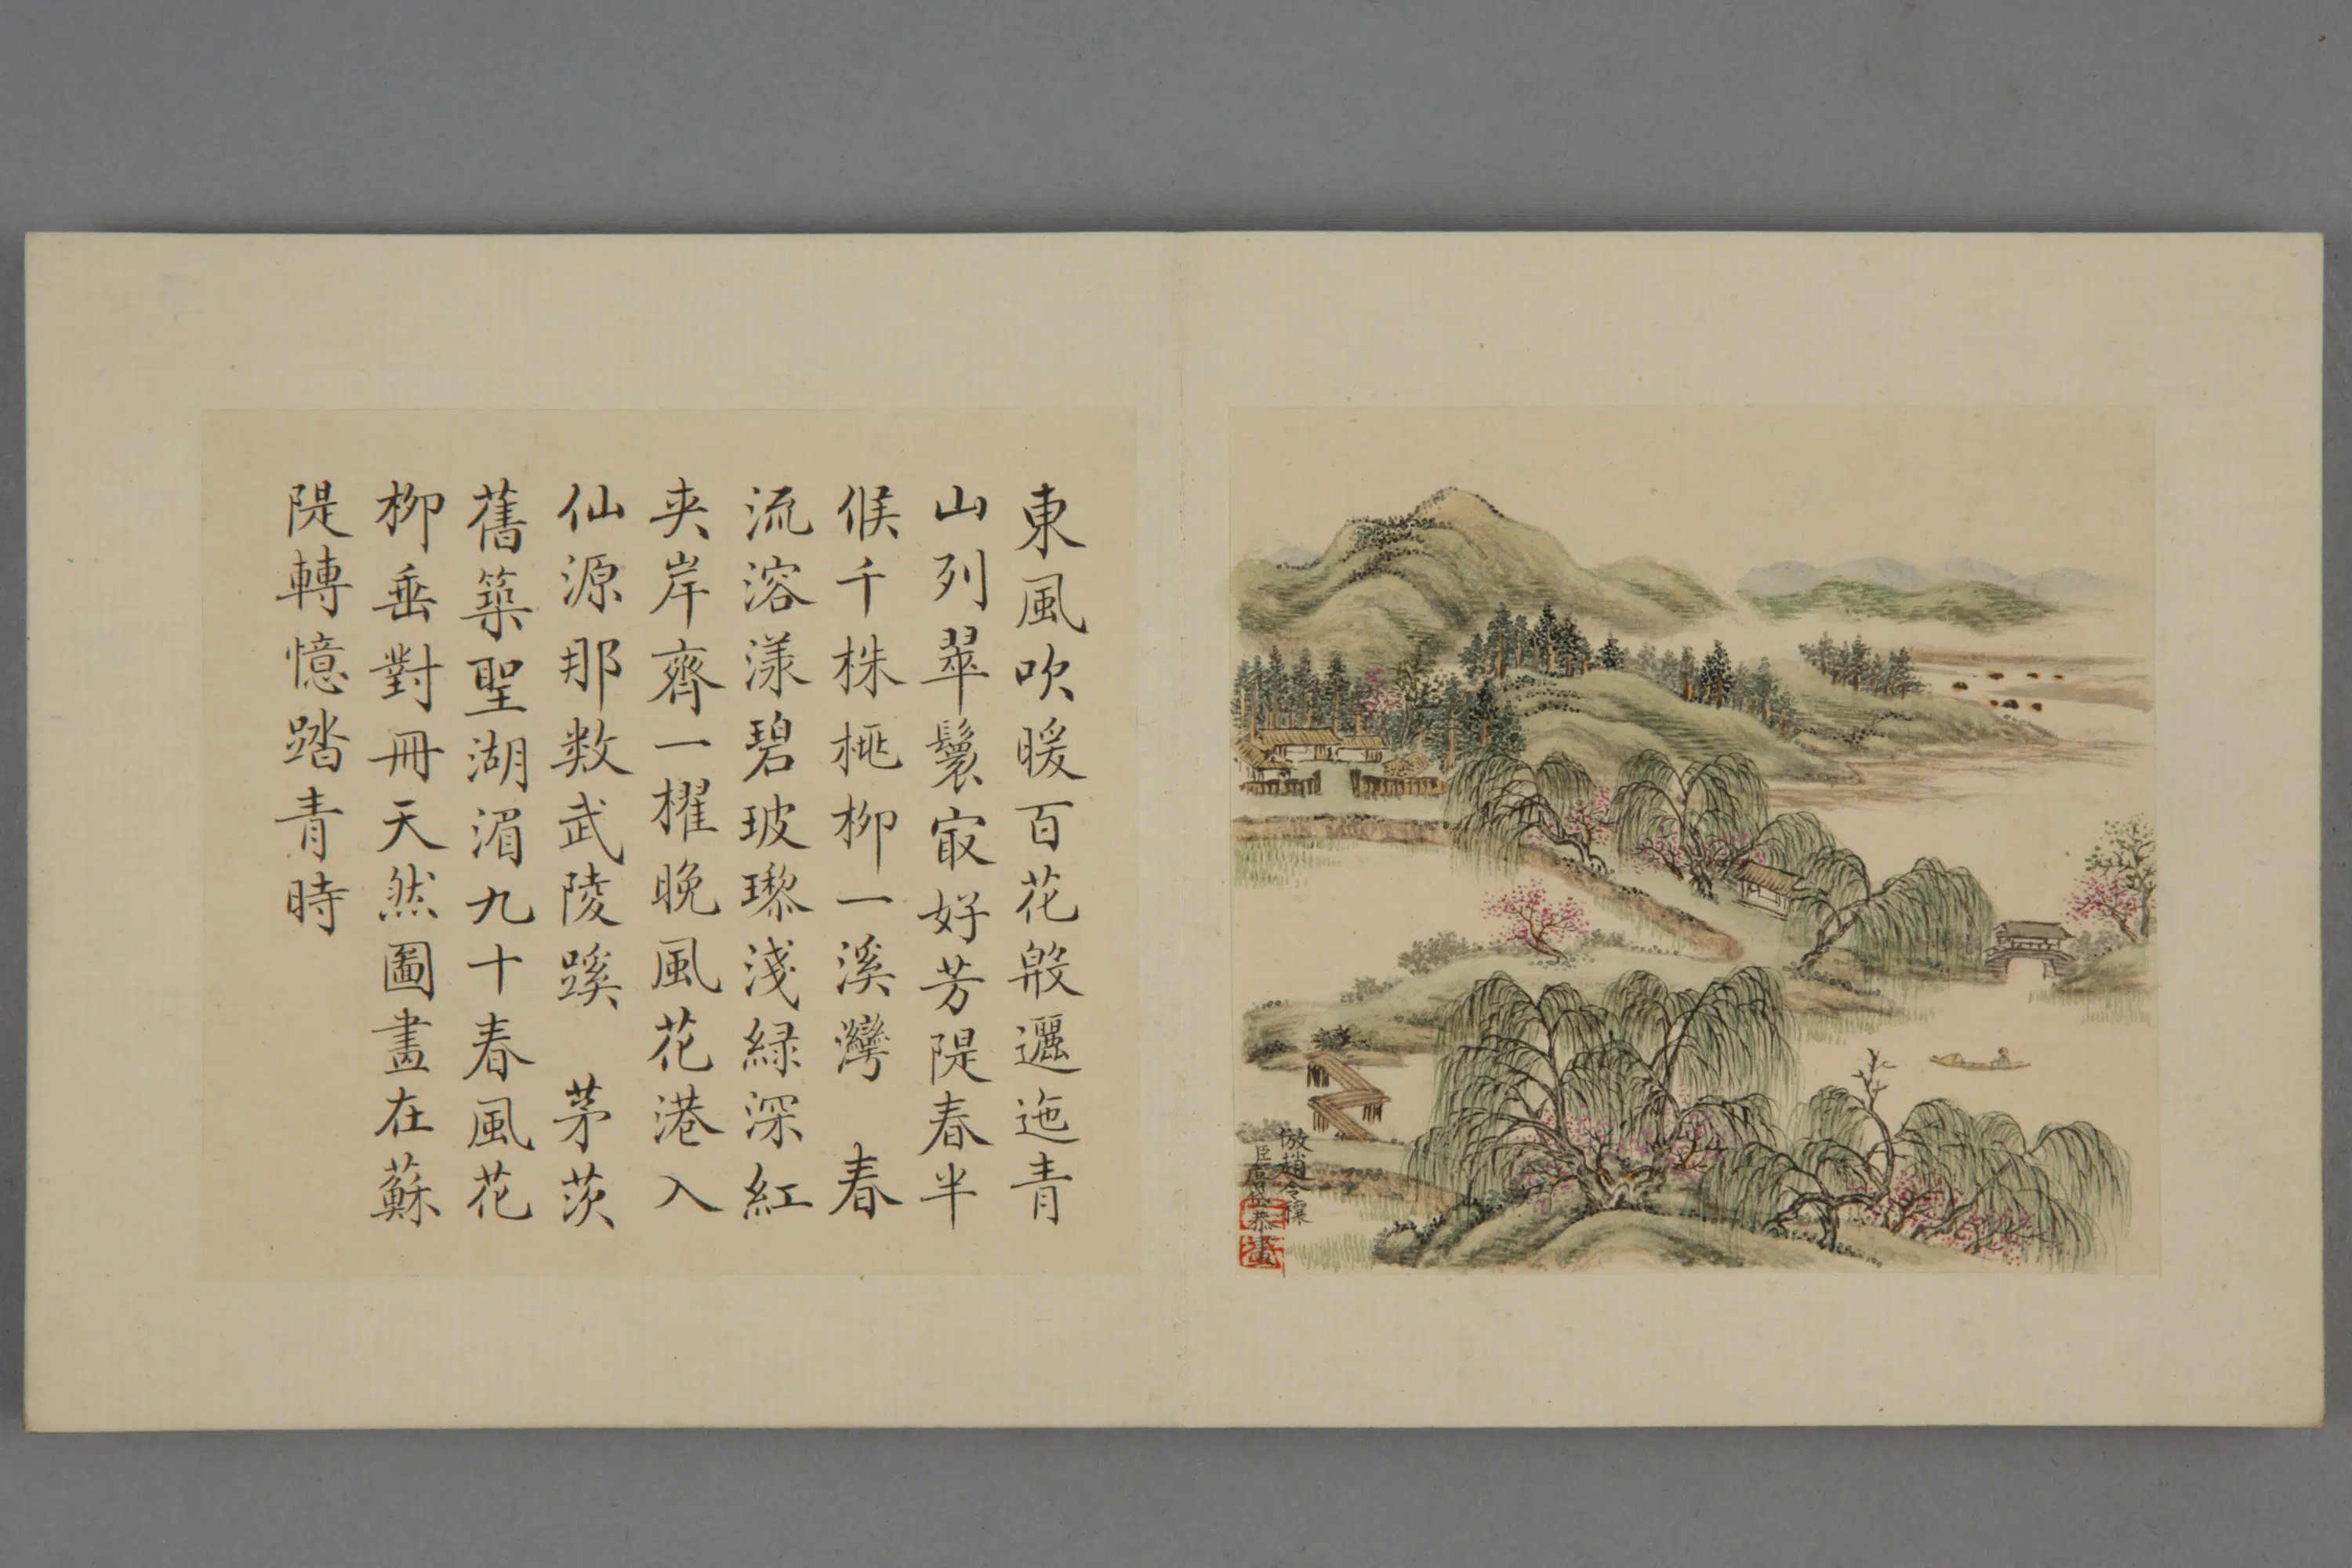 東風吹暖百花殷邐迤青
山列翠鬟㝡好芳隄春半
候千株桃柳一溪灣　春
流溶漾碧玻瓈淺綠深紅
夾岸齊一櫂晚風花港入
仙源那数武陵蹊　茅茨
舊築聖湖湄九十春風花
柳垂對冊天然圖畫在蘇
隄轉憶踏青時
倣趙令穰
臣唐岱恭畫